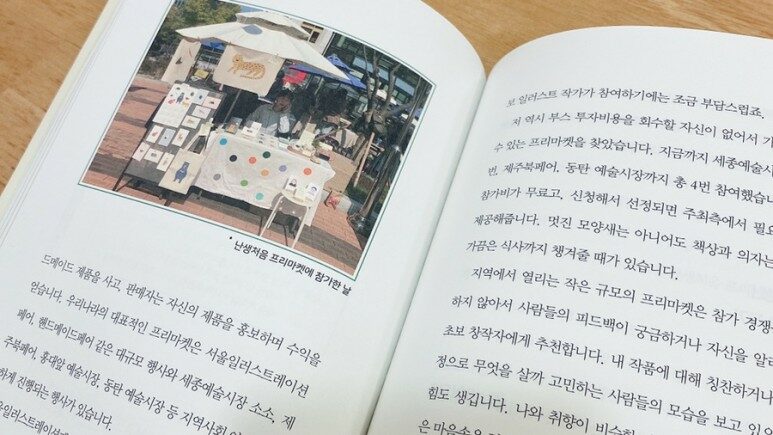 * 난생처음 프리마켓에 참가한 날
드메이드 제품을 사고, 판매자는 자신의 제품을 홍보하며 수익을
얻습니다. 우리나라의 대표적인 프리마켓은 서울일러스트레이션
페어, 핸드메이드페어 같은 대규모 행사와 세종예술시장 소소, 제
주북페어, 홍대앞 예술시장, 동탄 예술시장 등 지역사회
하게 진행되는 행사가 있습니다.
울일러스트레이션페
보 일러스트 작가가 참여하기에는 조금 부담스럽죠.
저 역시 부스 투자비용을 회수할 자신이 없어서
수 있는 프리마켓을 찾았습니다. 지금까지 세종예술시
번, 제주북페어, 동탄 예술시장까지 총 4번 참여했습
참가비가 무료고, 신청해서 선정되면 주최측에서 필요
제공해줍니다. 멋진 모양새는 아니어도 책상과 의자는
가끔은 식사까지 챙겨줄 때가 있습니다.
지역에서 열리는 작은 규모의 프리마켓은 참가 경쟁
하지 않아서 사람들의 피드백이 궁금하거나 자신을 알
초보 창작자에게 추천합니다. 내 작품에 대해 칭찬하거나
정으로 무엇을 살까 고민하는 사람들의 모습을 보고 있
힘도 생깁니다. 나와 취향이 비슷한
은 마음속